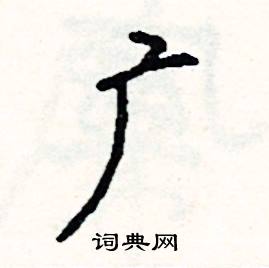 广
词典网